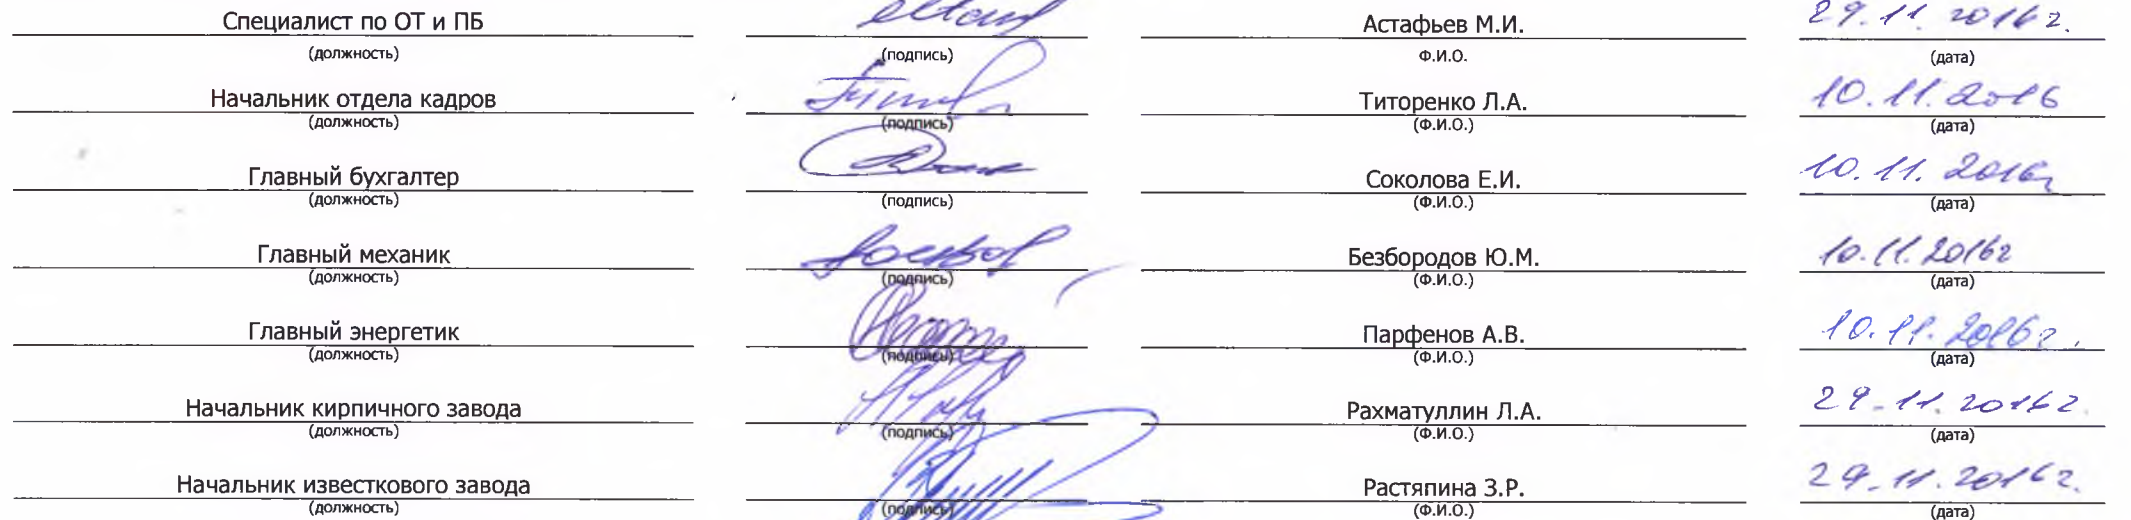 Специалист по ОТ и ПБ Астафьев М.И. 29.11.2016г.
(должность) (подпись) Ф.И.О. (дата)
Начальник отдела кадров Титоренко Л.А. 10.11.2016
(должность) (подпись) (Ф.И.О.) (дата)
Главный бухгалтер Соколова Е.И. 10.11.2016г
(должность) (подпись) (Ф.И.О.) (дата)
Главный механик Безбородов Ю.М. 10.11.2016г
(должность) (подпись) (Ф.И.О.) (дата)
Главный энергетик Парфенов А.В. 10.11.2016г.
(должность) (подпись) (Ф.И.О.) (дата)
Начальник кирпичного завода Рахматуллин Л.А. 29.11.2016г
(должность) (подпись) (Ф.И.О.) (дата)
Начальник известкового завода Растяпина З.Р. 29.11.2016г.
(должность) (подпись) (Ф.И.О.) (дата)